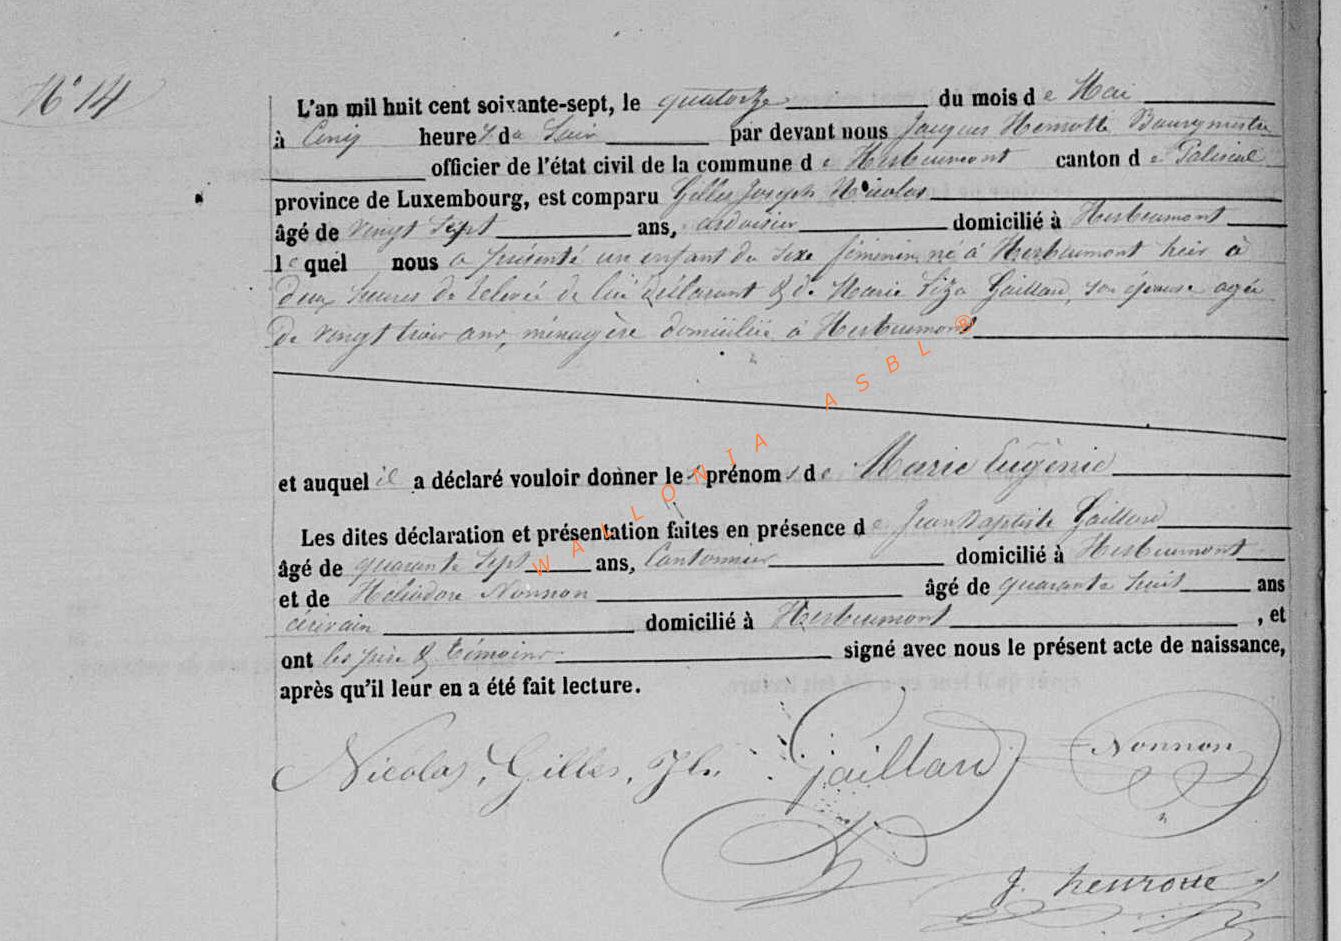 N° 14
L'an mil huit cent soixante-sept, le quatorze du mois de Mai
à Cinq heures du Soir par devant nous Jacques Henrotte Bourgmestre
officier de l'état civil de la commune de Herbeumont canton de Paliseul
province de Luxembourg, est comparu Gilles Joseph Nicolas
âgé de vingt sept ans, ardoisier domicilié à Herbeumont
lequel nous a présenté un enfant du sexe féminin, né à Herbeumont hier à
deux heures de relevée de lui déclarant & de Marie Liza Gaillard, son épouse agée
de vingt trois ans, ménagère domiciliée à Herbeumont
et auquel il a déclaré vouloir donner les prénoms de Marie Eugénie
Les dites déclaration et présentation faites en présence de Jean Baptiste Gaillard
âgé de quarante sept ans, Cantonnier domicilié à Herbeumont
et de Héliodore Nonnon âgé de quarante huit ans
écrivain domicilié à Herbeumont , et
ont les père & témoins signé avec nous le présent acte de naissance,
après qu'il leur en a été fait lecture.
Nicolas, Gilles, Jh. Gaillard Nonnon
J. henrotte
WALLONIA ASBL ®